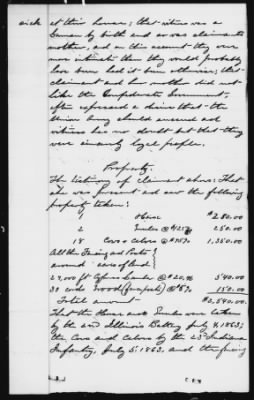 sick at their house; that witness was a
German by birth and so was claimants
mother, and on this account they were
more intimate than they would probably
have been had it been otherwise; that
claimant and her mother did not
like the Confederate Government-
often expressed a desire that the
Union Army should succeed and
witness has no doubt but that they
were sincerely loyal people.
Property.
The testimony of claimant alone: That
she was present and saw the following
property taken:
1 Horse $200.00
2 Mules @ $125 250.00
18 Cows & Calves @ $75 1,350.00
All the Fencing and Posts
around
27,000 ft Cypress Lumber @ $20. 540.00
30 cords Wood (fence posts) @ $5 150.00
Total amount $2,540.00
That the Horse and Mules were taken
by the 2nd Illinois Battery July 4, 1863;
the Cows and Calves by the 25 Indiana
Infantry, July 5, 1863, and the fencing